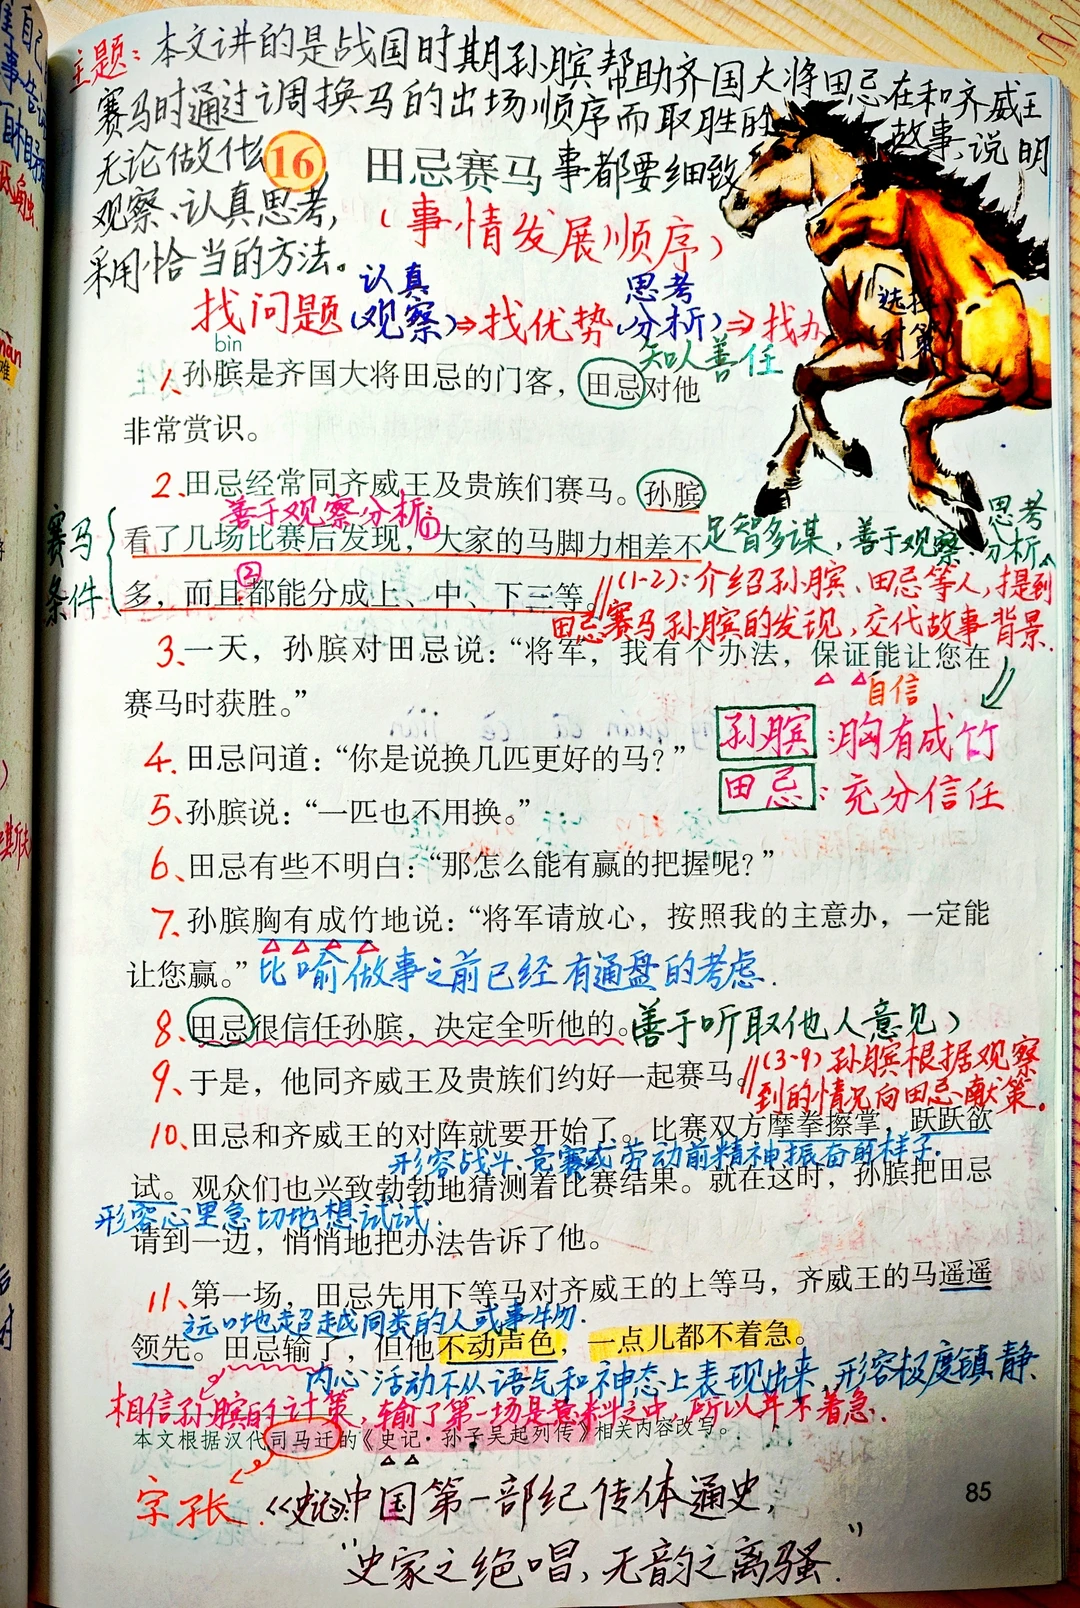 主题:本文讲的是战国时期孙膑帮助齐国大将田忌在和齐威王
赛马时通过调换马的出场顺序而取胜的故事,说明
无论做什么 16 田忌赛马 事都要细致
观察、认真思考,
(事情发展顺序)
采用恰当的方法。
认真 思考
找问题(观察)⇒找优势(分析)⇒找办
选择
对策
bìn
知人善任
1、孙膑是齐国大将田忌的门客，田忌对他
非常赏识。
2、田忌经常同齐威王及贵族们赛马。孙膑
善于观察分析:①
足智多谋,善于观察、思考分析。
赛马条件
看了几场比赛后发现，大家的马脚力相差不
②
多，而且都能分成上、中、下三等。
∥(1-2):介绍孙膑、田忌等人,提到
田忌赛马孙膑的发现,交代故事背景.
3、一天，孙膑对田忌说：“将军，我有个办法，保证能让您在
自信
赛马时获胜。”
孙膑:胸有成竹
4、田忌问道：“你是说换几匹更好的马？”
田忌:充分信任
5、孙膑说：“一匹也不用换。”
6、田忌有些不明白：“那怎么能有赢的把握呢？”
7、孙膑胸有成竹地说：“将军请放心，按照我的主意办，一定能
让您赢。”比喻做事之前已经有通盘的考虑.
8、田忌很信任孙膑，决定全听他的。(善于听取他人意见)
9、于是，他同齐威王及贵族们约好一起赛马。
∥(3-9)孙膑根据观察
到的情况向田忌献策。
10、田忌和齐威王的对阵就要开始了。比赛双方摩拳擦掌，跃跃欲
形容战斗、竞赛或劳动前精神振奋的样子.
试。观众们也兴致勃勃地猜测着比赛结果。就在这时，孙膑把田忌
形容心里急切地想试试.
请到一边，悄悄地把办法告诉了他。
11、第一场，田忌先用下等马对齐威王的上等马，齐威王的马遥遥
远远地超越同类的人或事物.
领先。田忌输了，但他不动声色，一点儿都不着急。
内心活动不从语气和神态上表现出来,形容极度镇静.
相信孙膑的计策,输了第一场是意料之中,所以并不着急.
本文根据汉代司马迁的《史记·孙子吴起列传》相关内容改写。
字子长.《史记》:中国第一部纪传体通史,
85
“史家之绝唱,无韵之离骚.”